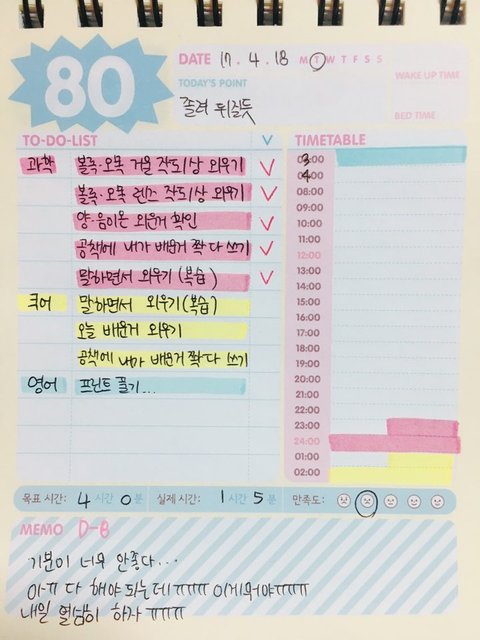 80
DATE 17. 4. 18 M T W T F S S
WAKE UP TIME
TODAY'S POINT
졸려 뒤질듯
BED TIME
TO-DO-LIST
과학 볼록·오목 거울 작도/상 외우기
볼록·오목 렌즈 작도/상 외우기
양·음이온 외운거 확인
공책에 내가 배운거 쫙 다 쓰기
말하면서 외우기 (복습)
말하면서 외우기 (복습)
오늘 배운거 외우기
공책에 내가 배운거 쫙 다 쓰기
영어 프린트 풀기...
TIMETABLE
3
4
08:00
09:00
10:00
11:00
12:00
13:00
14:00
15:00
16:00
17:00
18:00
19:00
20:00
21:00
22:00
23:00
24:00
01:00
02:00
목표 시간: 4 시간 0 분 실제 시간: 1 시간 5 분 만족도:
MEMO D-8
기분이 너무 안좋다...
아ㅠ 다 해야 되는데ㅠㅠㅠ 이게뭐야ㅠㅠㅠ
내일 열심히 하자 ㅠㅠㅠ